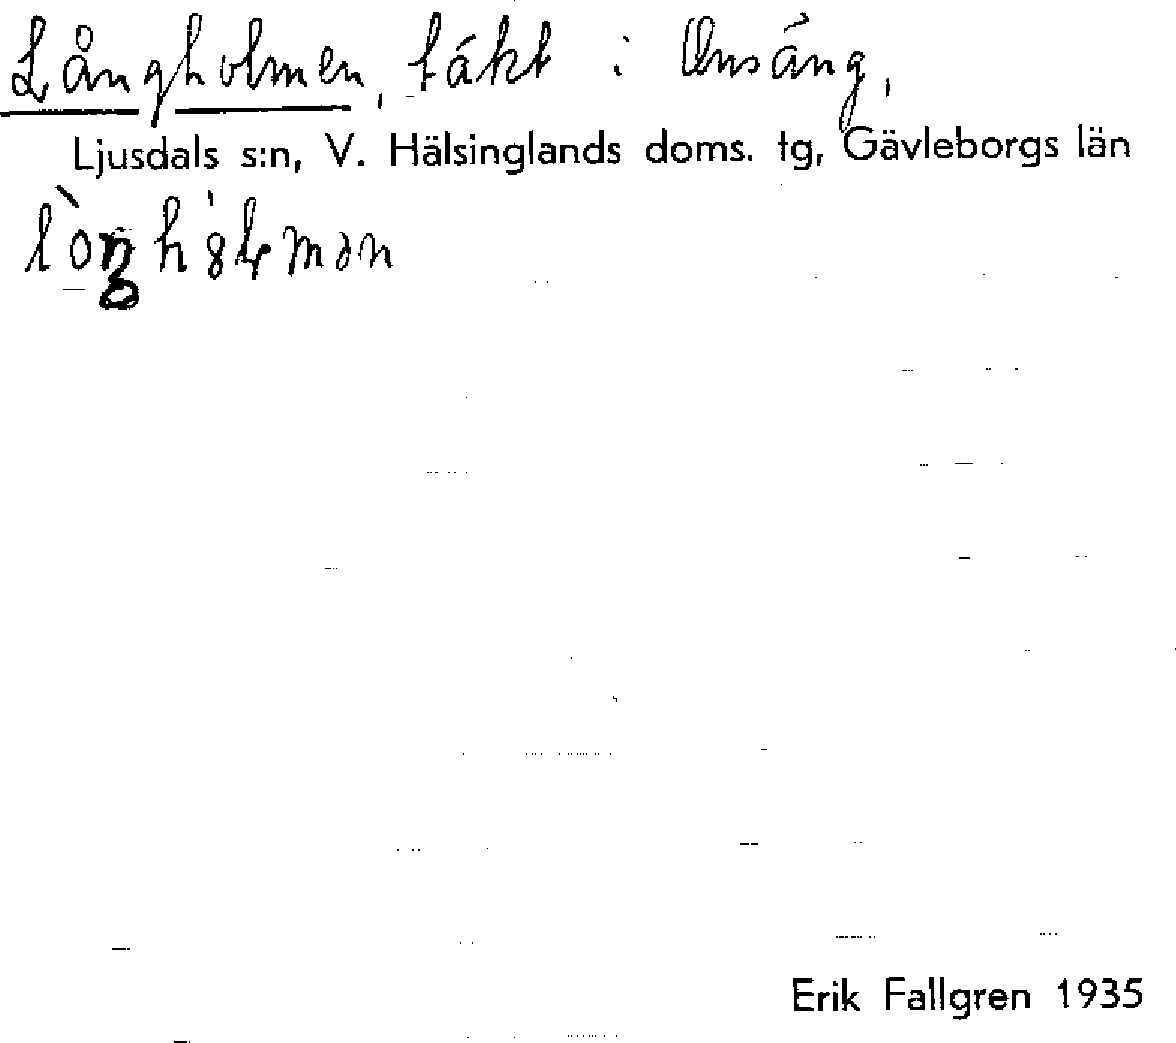 Långholmen, täkt i Onsäng,
Ljusdals s:n, V. Hälsinglands doms. tg, Gävleborgs län
Erik Fallgren 1935